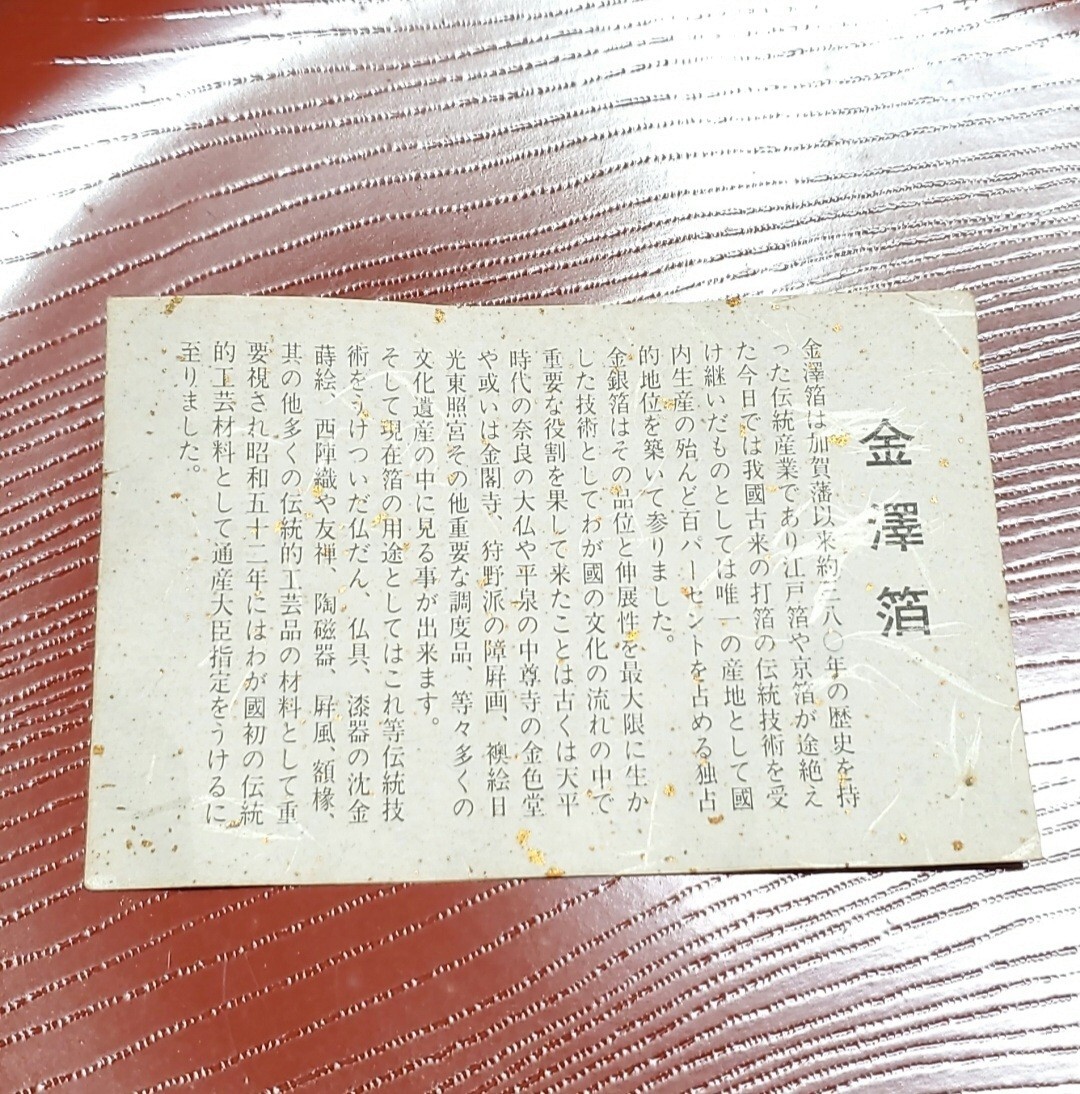 金澤箔
金澤箔は加賀藩以来約三八〇年の歴史を持
った伝統産業であり江戸箔や京箔が途絶え
た今日では我國古来の打箔の伝統技術を受
け継いだものとしては唯一の産地として國
内生産の殆んど百パーセントを占める独占
的地位を築いて参りました。
金銀箔はその品位と伸展性を最大限に生か
した技術としてわが國の文化の流れの中で
重要な役割を果して来たことは古くは天平
時代の奈良の大仏や平泉の中尊寺の金色堂
や或いは金閣寺、狩野派の障屏画、襖絵日
光東照宮その他重要な調度品、等々多くの
文化遺産の中に見る事が出来ます。
そして現在箔の用途としてはこれ等伝統技
術をうけついだ仏だん、仏具、漆器の沈金
蒔絵、西陣織や友禅、陶磁器、屛風、額椽、
其の他多くの伝統的工芸品の材料として重
要視され昭和五十二年にはわが國初の伝統
的工芸材料として通産大臣指定をうけるに
至りました。